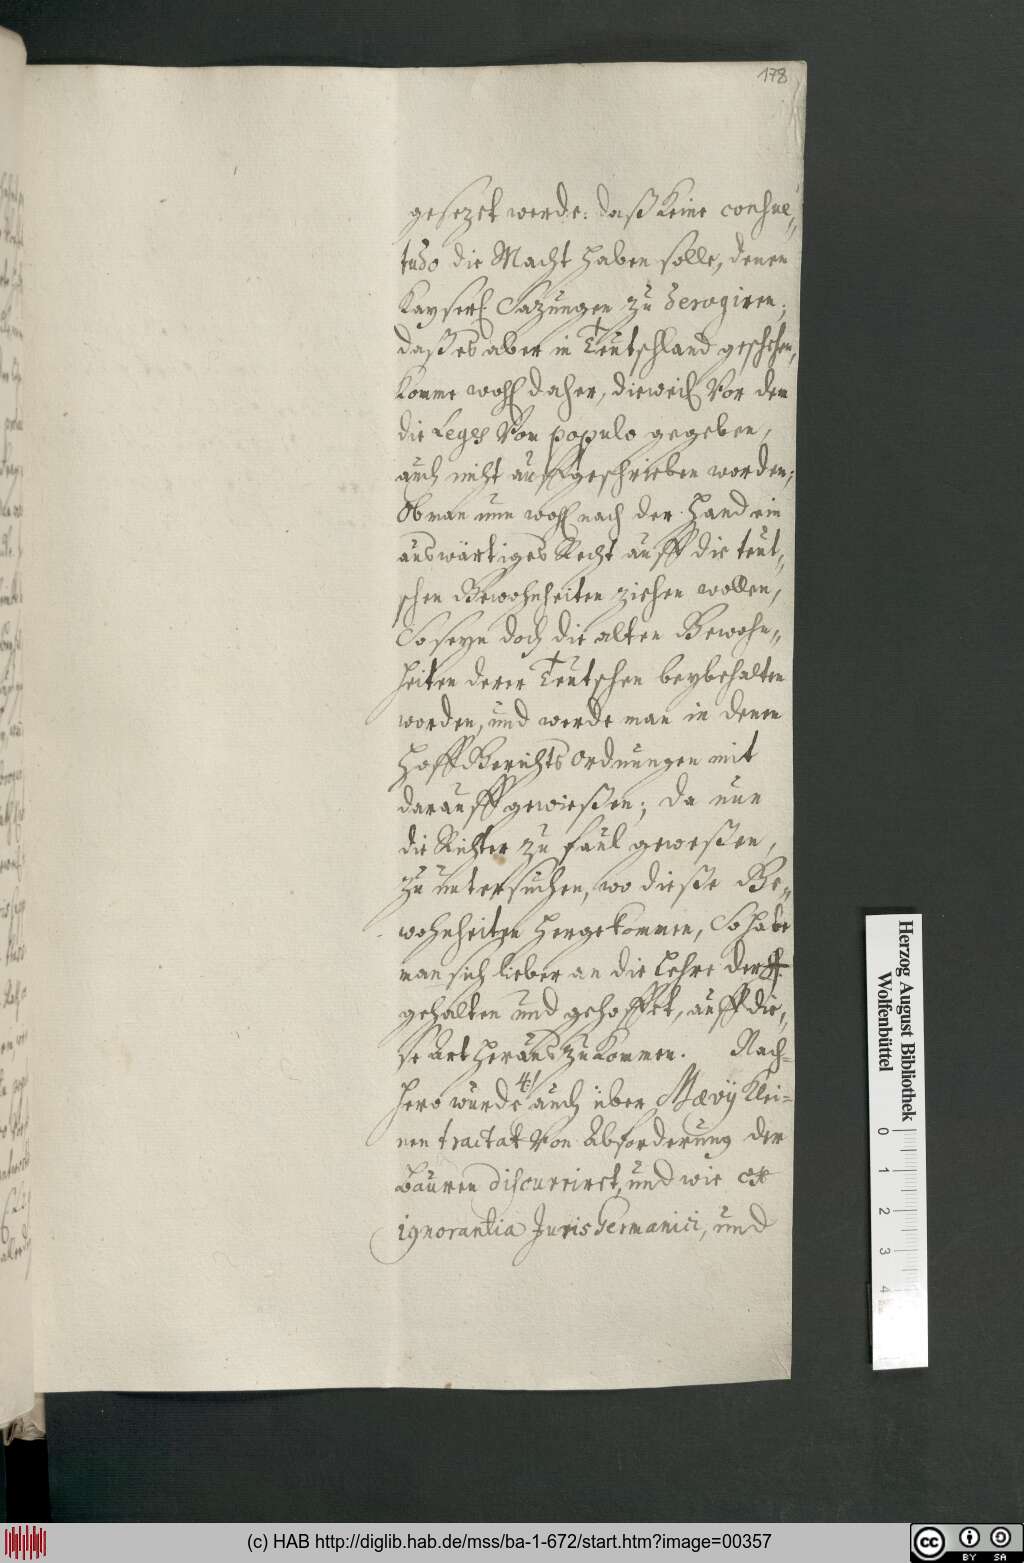 178
gesezet werde: daß keine consue„
tudo die Macht haben solle, denen
Kayserl Sazungen zu derogiren;
daß es aber in Teutschland geschehen,
komme wohl daher, dieweil vor dem
die Leges von populo gegeben,
auch nicht auffgeschrieben worden;
Ob man nun wohl nach der Hand ein
auswärtiges Recht auff die teut„
schen Gewohnheiten ziehen wollen,
So seyn doch die alten Gewohn„
heiten derer Teutschen beybehalten
worden, und werde man in denen
HoffGerichts Ordnungen mit
darauff gewießen; da nun
die Richter zu faul geweßen,
zu untersuchen, wo dieße Ge„
wohnheiten hergekommen, So habe
man sich lieber an die Lehre der
gehalten und gehoffet, auff die„
se Art heraus zu kommen. Nach-
hero wurde 4/ auch über Mævij klei-
nen tractat von Abforderung der
Bauren discuriret, und wie
ignorantia Juris Germanici, und
Herzog August Bibliothek
Wolfenbüttel
0
1
2
3
4
(c) HAB http://diglib.hab.de/mss/ba-1-672/start.htm?image=00357
cc
BY SA